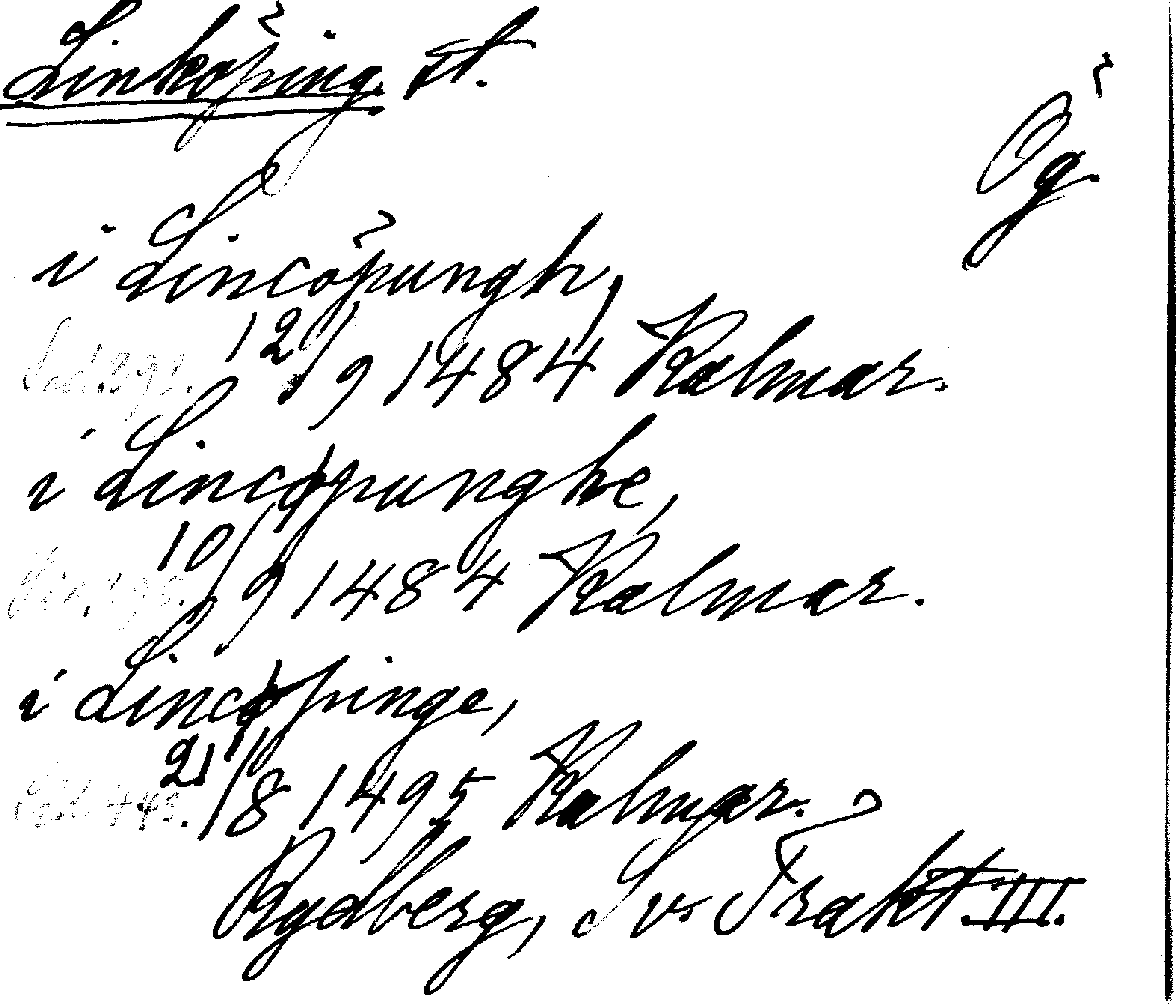 Linköping. st.
Ög.
i Lincöpungh,
12/9 1484 Kalmar.
i Lincøpunghe,
10/9 1484 Kalmar.
i Lincøpinge,
21/8 1495 Kalmar.
Rydberg, Sv. Trakt. III.